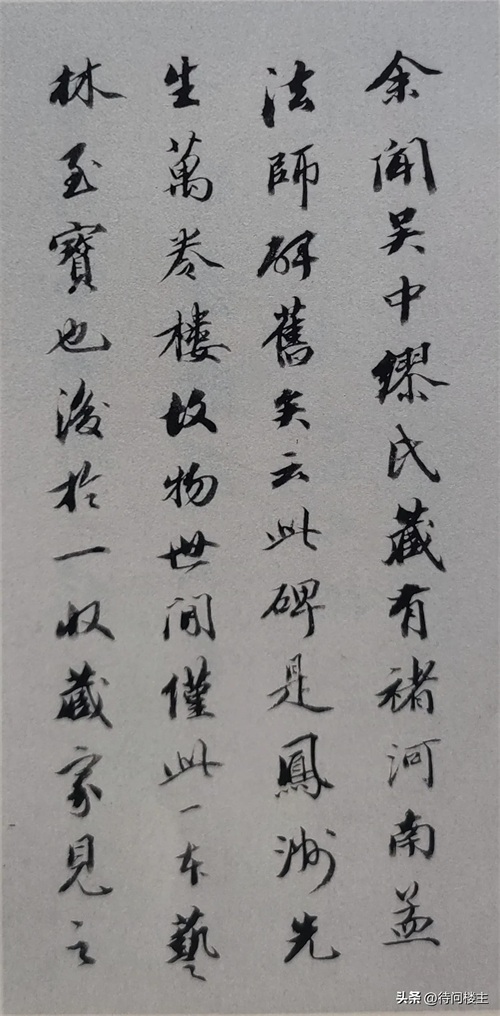 余闻吴中缪氏藏有褚河南孟
法師碑舊矣云此碑是鳳洲先
生萬卷樓故物世间僅此一本藝
林至寶也後於一收藏家見之
头条 @待问楼主